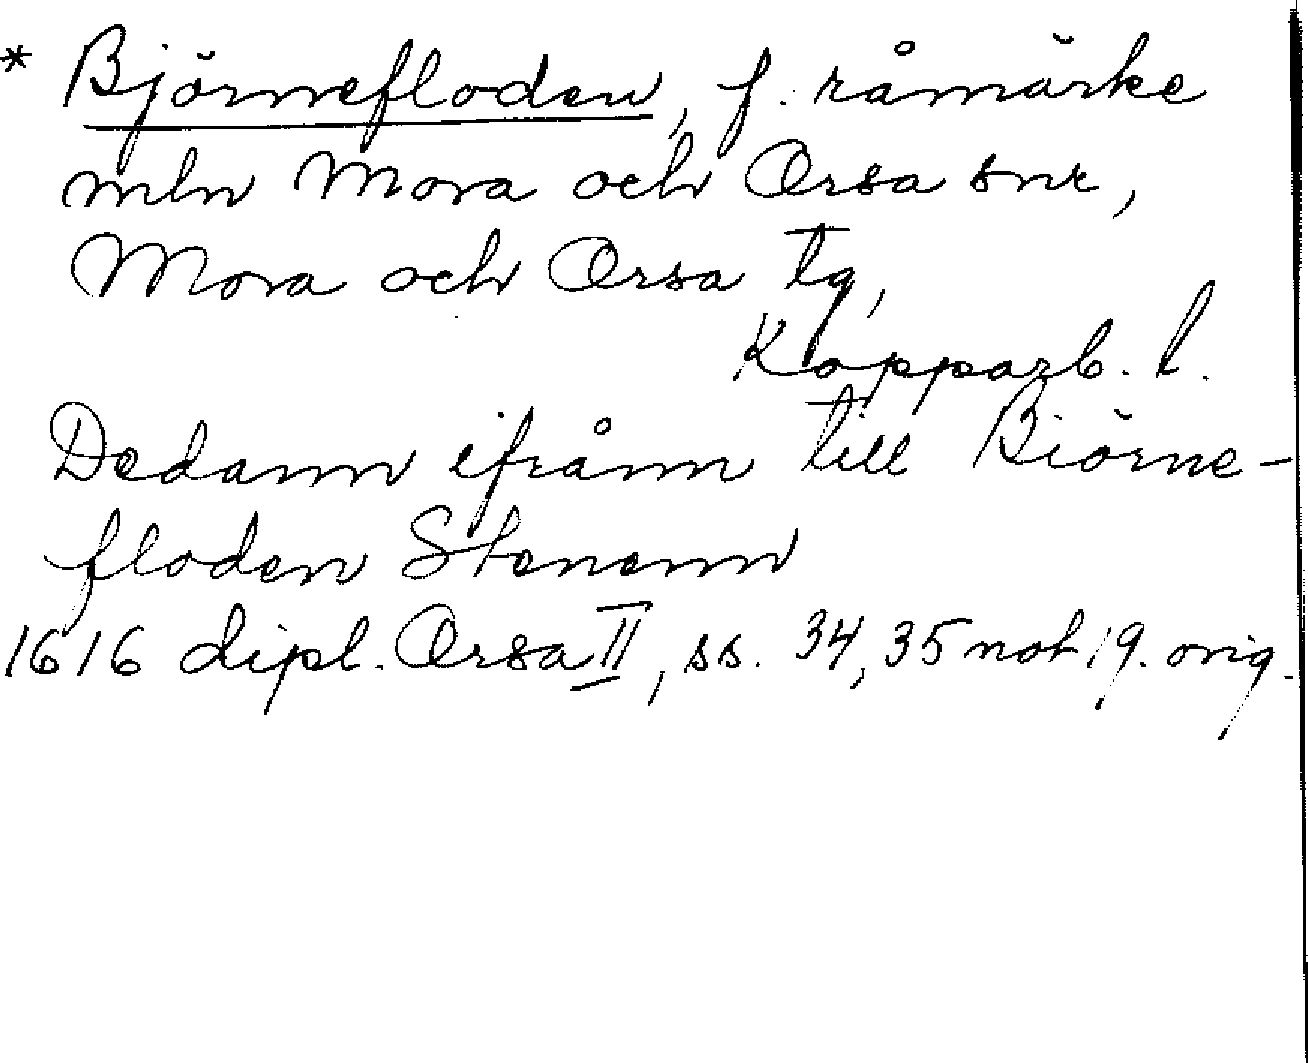 * Björnefloden, f. råmärke
mln Mora och Orsa snr,
Mora och Orsa tg,
Kopparb. l.
Dedann ifrånn till Biörne-
floden Stenenn
1616 dipl. Orsa II, ss. 34, 35 not 19. orig.